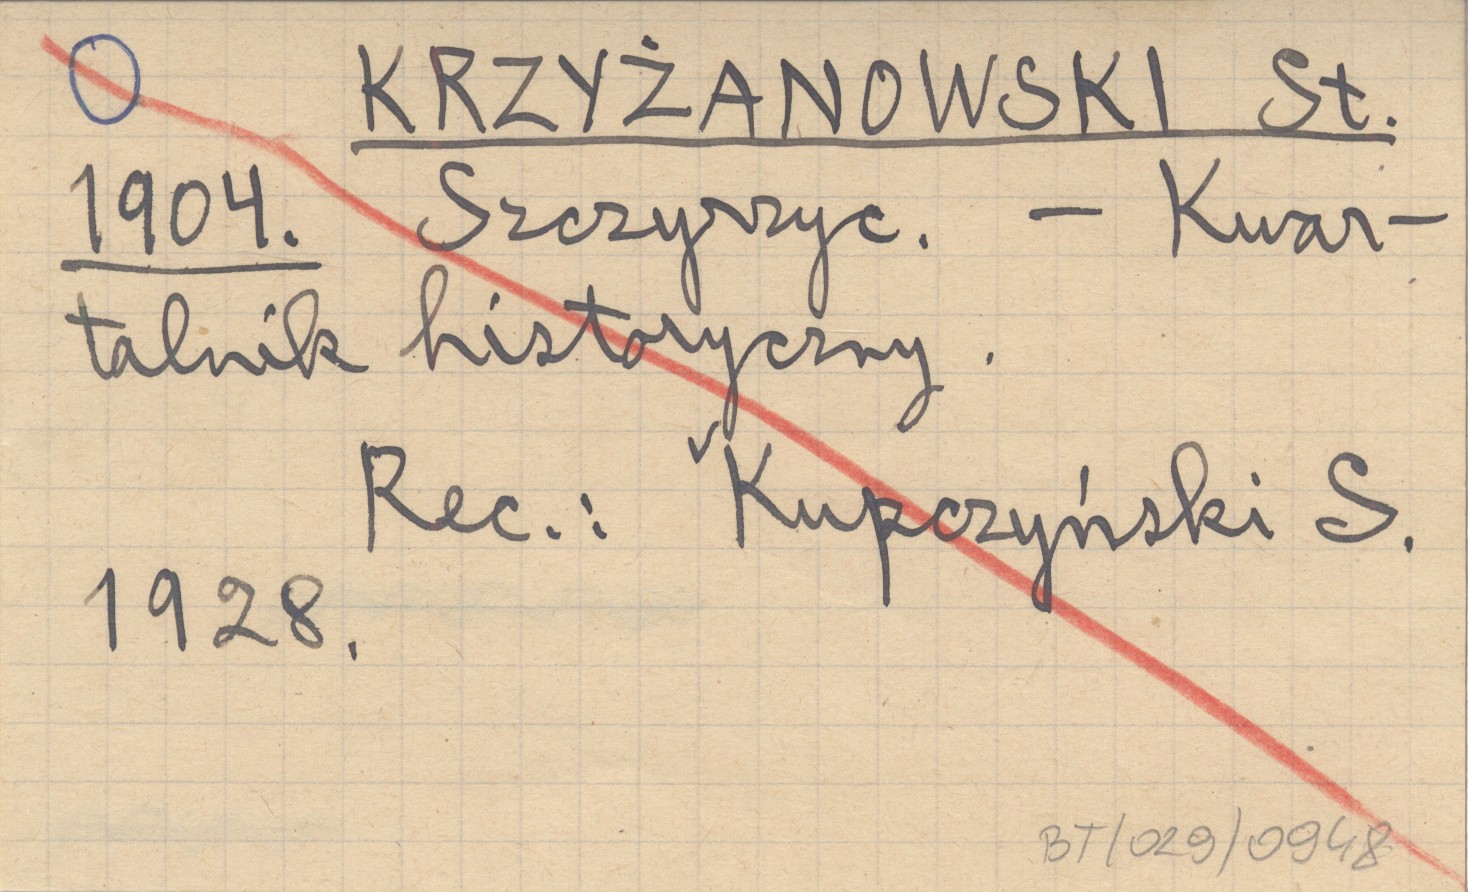 KRZYŻANOWSKI St.
1904. Szczyrzyc. — Kwar-
talnik historyczny.
Rec.: Kupczyński S.
1928.
BT/029/0948